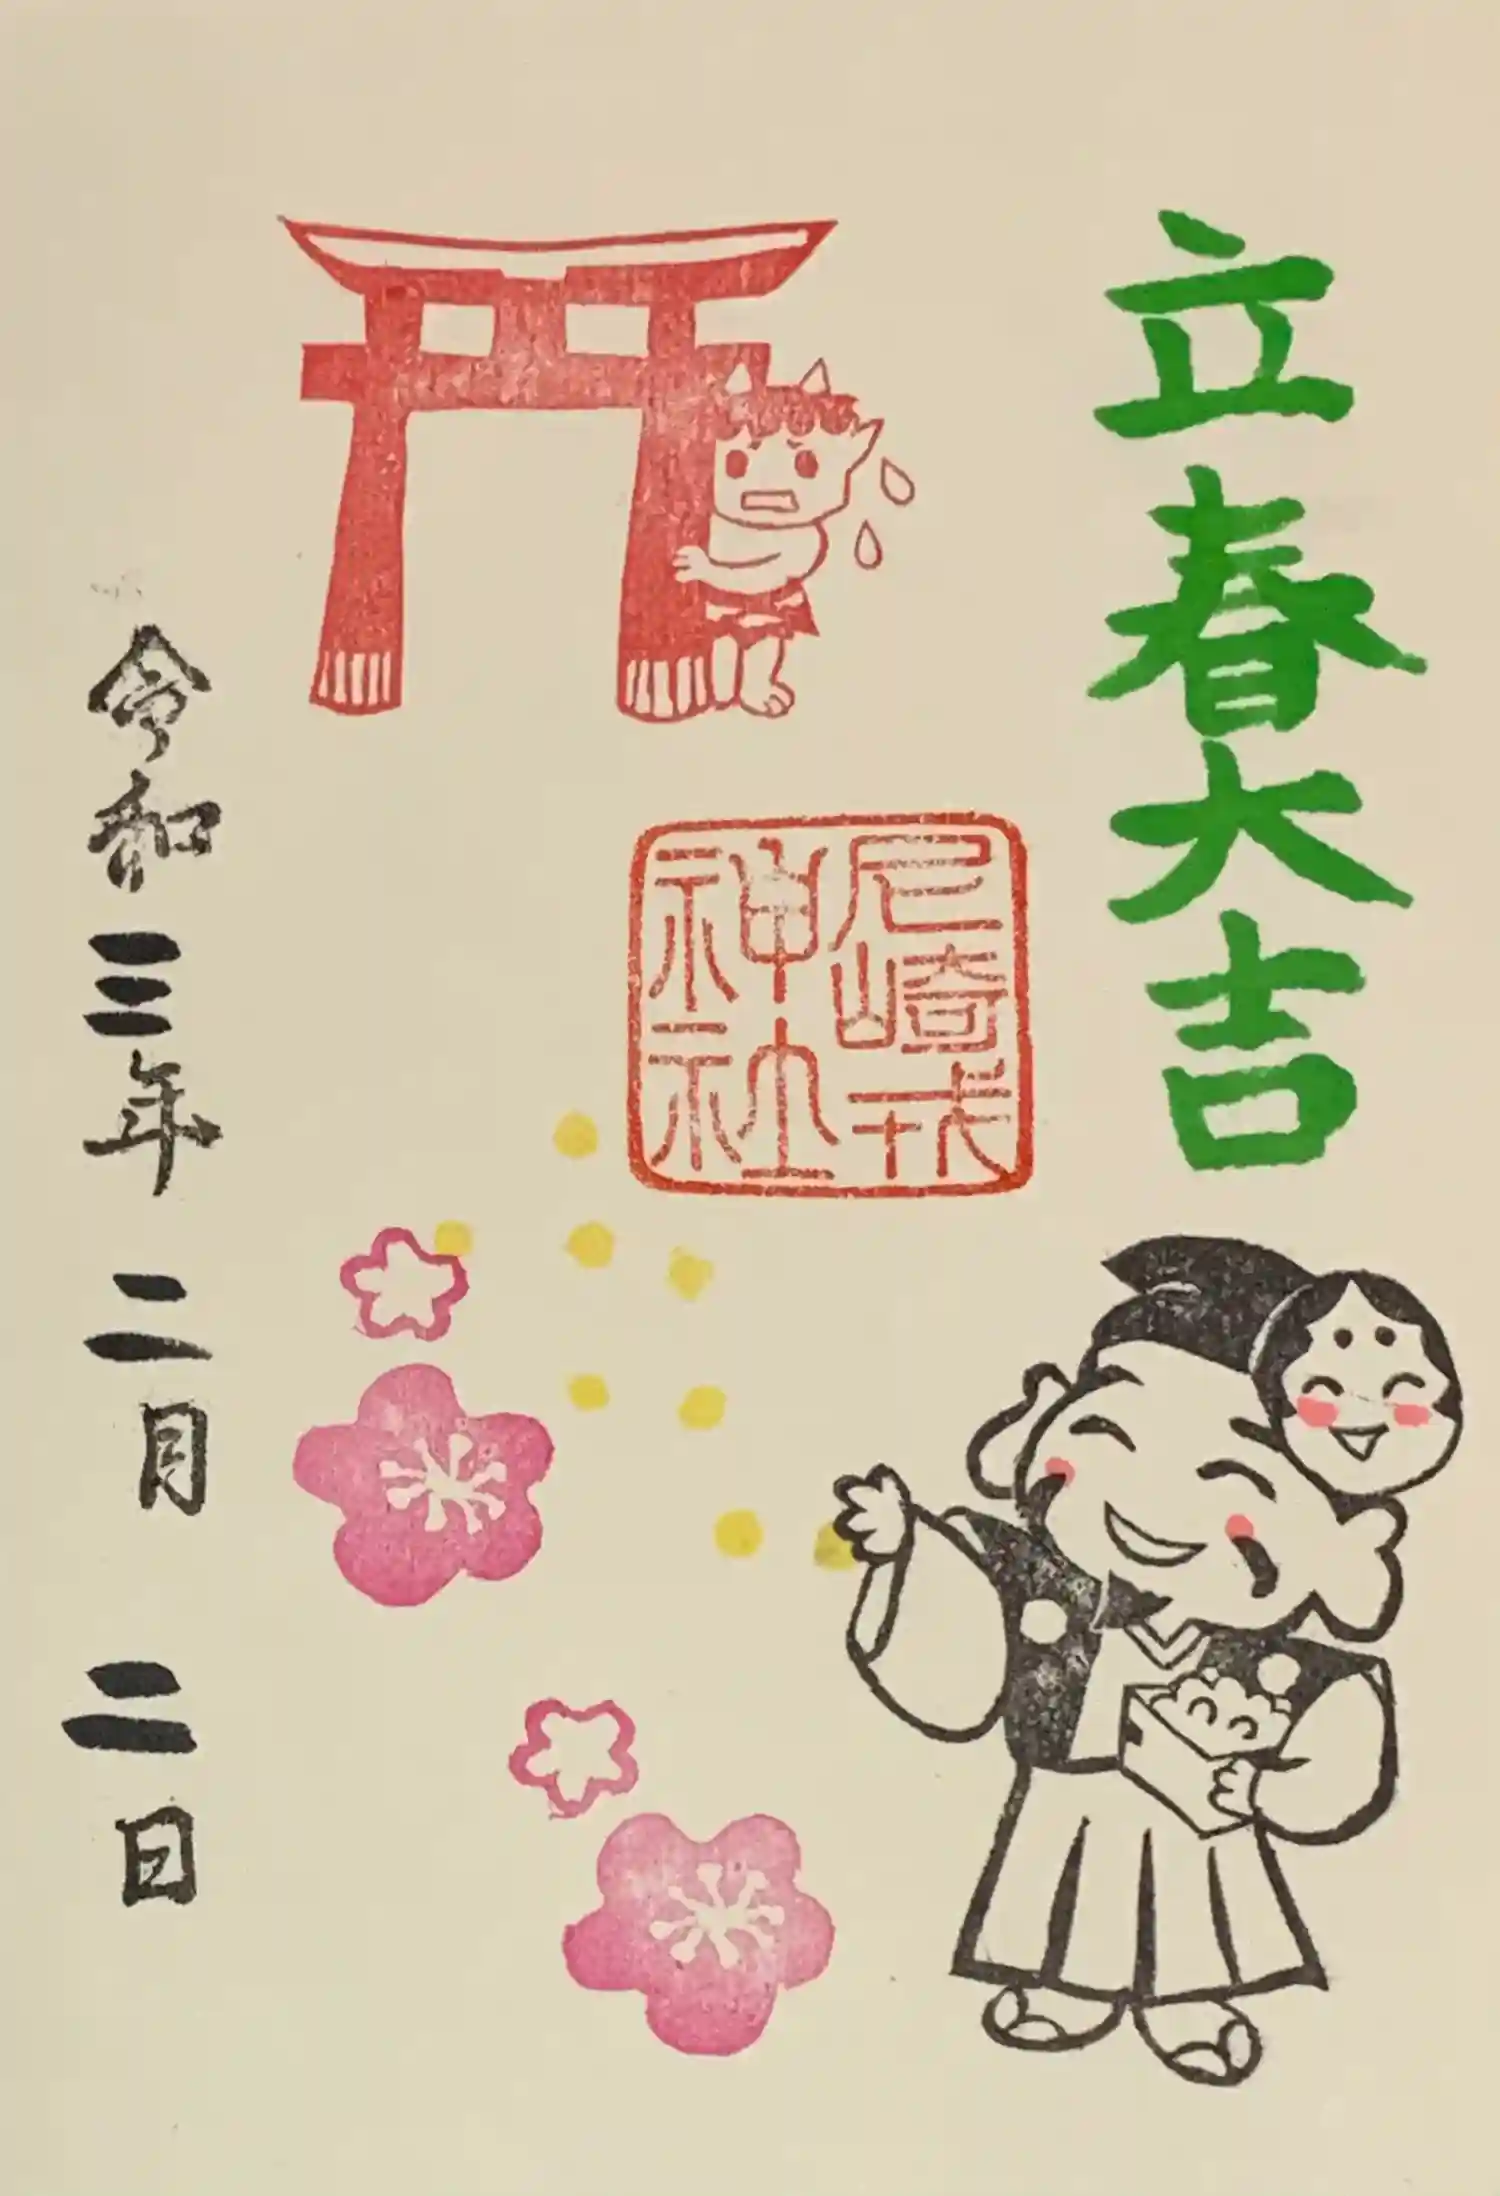 立春大吉
尼崎戎
神社
令和三年二月二日